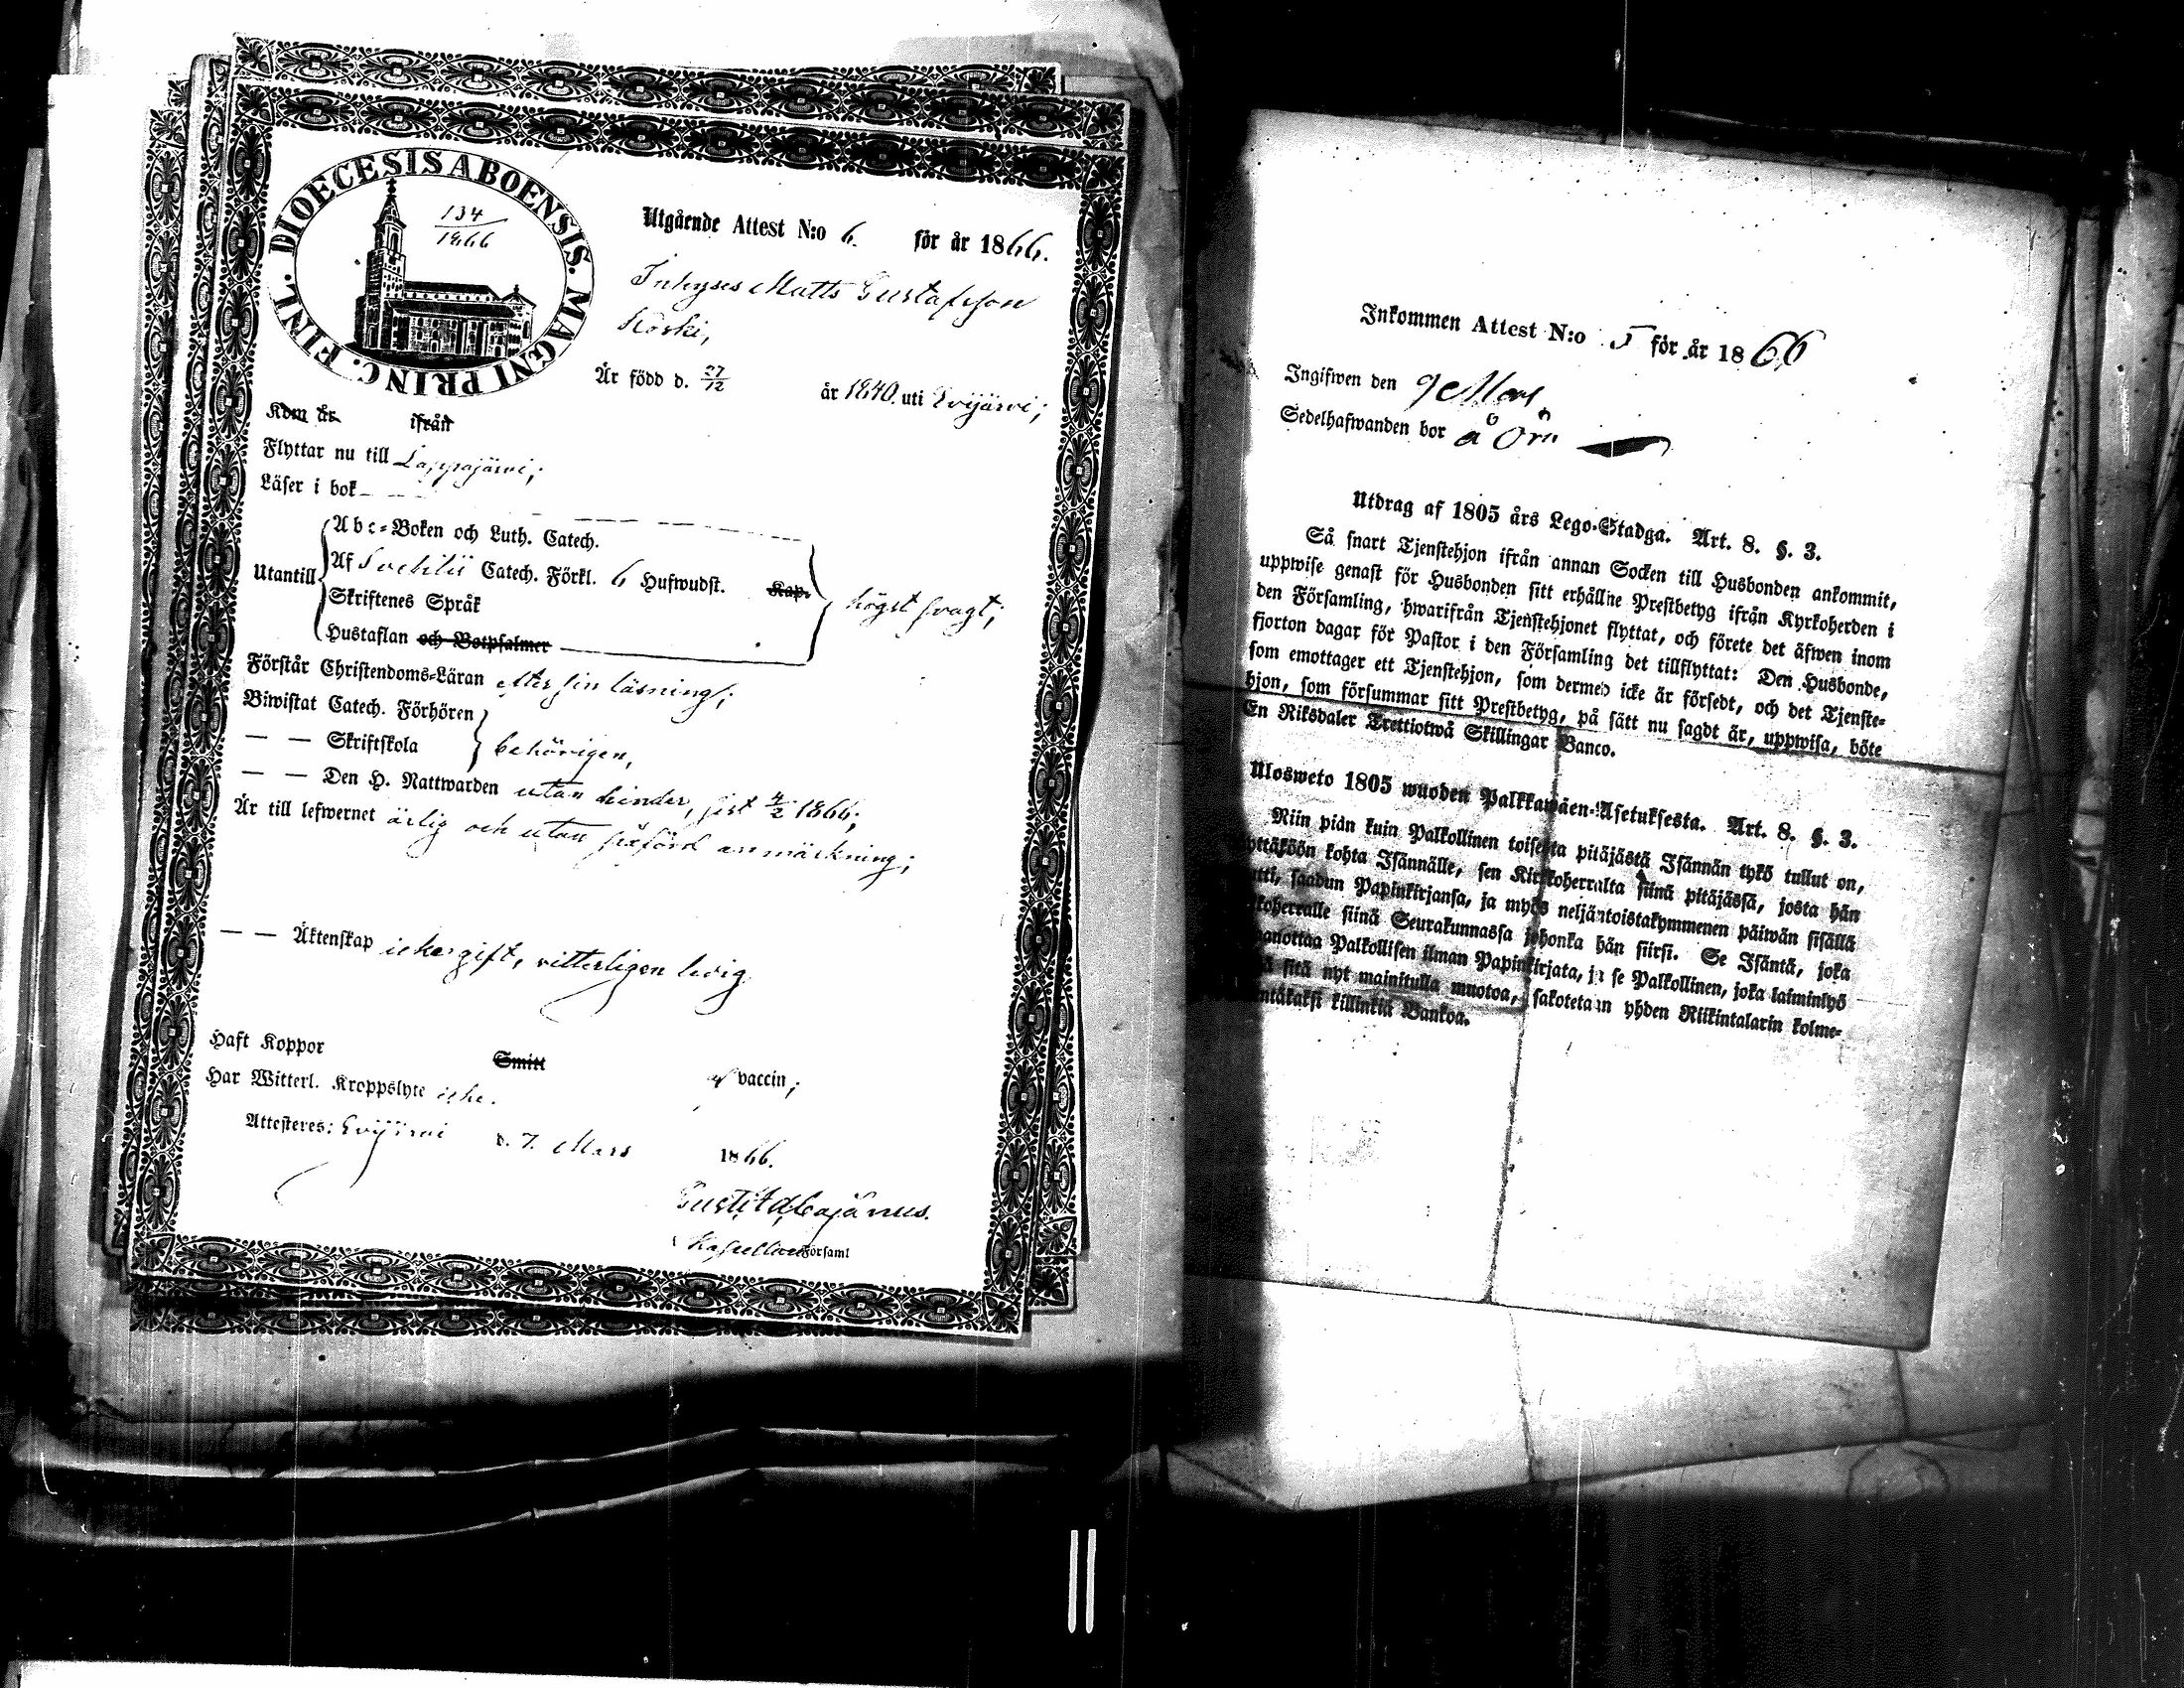 DIOECESIS ABOENSIS. MAGNI PRINC. FINL.
134
1866
Utgående Attest N:o 6. för år 1866.
Inhyses Matts Gustafsson
Koski,
Är född d. 27/12 år 1840. uti Evijärvi;
Kom år ifrån
Flyttar nu till Lappajärvi;
Läser i bok
Utantill
Abc-Boken och Luth. Catech.
Af Svebilii Catech. Förkl. 6 Hufwudst. Kap.
Skriftenes Språk
Hustaflan och Botpsalmer
högst svagt;
Förstår Christendoms-Läran efter sin läsning;
Biwistat Catech. Förhören
— — Skriftskola
behörigen,
— — Den H. Nattwarden utan hinder, sist 4/2 1866;
Är till lefwernet ärlig och utan införd anmärkning;
— — Äktenskap icke gift, vitterligen ledig
Haft Koppor Smitt af vaccin;
Har Witterl. Kroppslyte icke.
Attesteres: Evijärvi d. 7. Mars 1866.
Gust. Ad. Cajanus.
Kapellan Församl
Inkommen Attest N:o 5 för år 1866
Ingifwen den 9 Mars
Sedelhafwanden bor å Örn
Utdrag af 1805 års Lego-Stadga. Art. 8. §. 3.
Så snart Tjenstehjon ifrån annan Socken till Husbonden ankommit,
uppwise genast för Husbonden sitt erhållne Prestbetyg ifrån Kyrkoherden i
den Församling, hwarifrån Tjenstehjonet flyttat, och förete det äfwen inom
fjorton dagar för Pastor i den Församling det tillflyttat: Den Husbonde,
som emottager ett Tjenstehjon, som dermed icke är försedt, och det Tjenste-
hjon, som försummar sitt Prestbetyg, på sätt nu sagdt är, uppwisa, böte
En Riksdaler Trettiotwå Skillingar Banco.
Ulosweto 1805 wuoden Palkkawäen-Asetuksesta. Art. 8. §. 3.
Niin pian kuin Palkollinen toisesta pitäjästä Isännän tykö tullut on,
yttäköön kohta Isännälle, sen Kirkkoherralta siinä pitäjässä, josta hän
utti, saadun Papinkirjansa, ja myös neljäntoistakymmenen päiwän sisällä
koherralle siinä Seurakunnassa johonka hän siirsi. Se Isäntä, joka
anottaa Palkollisen ilman Papinkirjata, ja se Palkollinen, joka laiminlyö
ä sitä nyt mainitulla muotoa, sakotetaan yhden Riikintalarin kolme-
ntäkaksi killinkiä Bankoa.